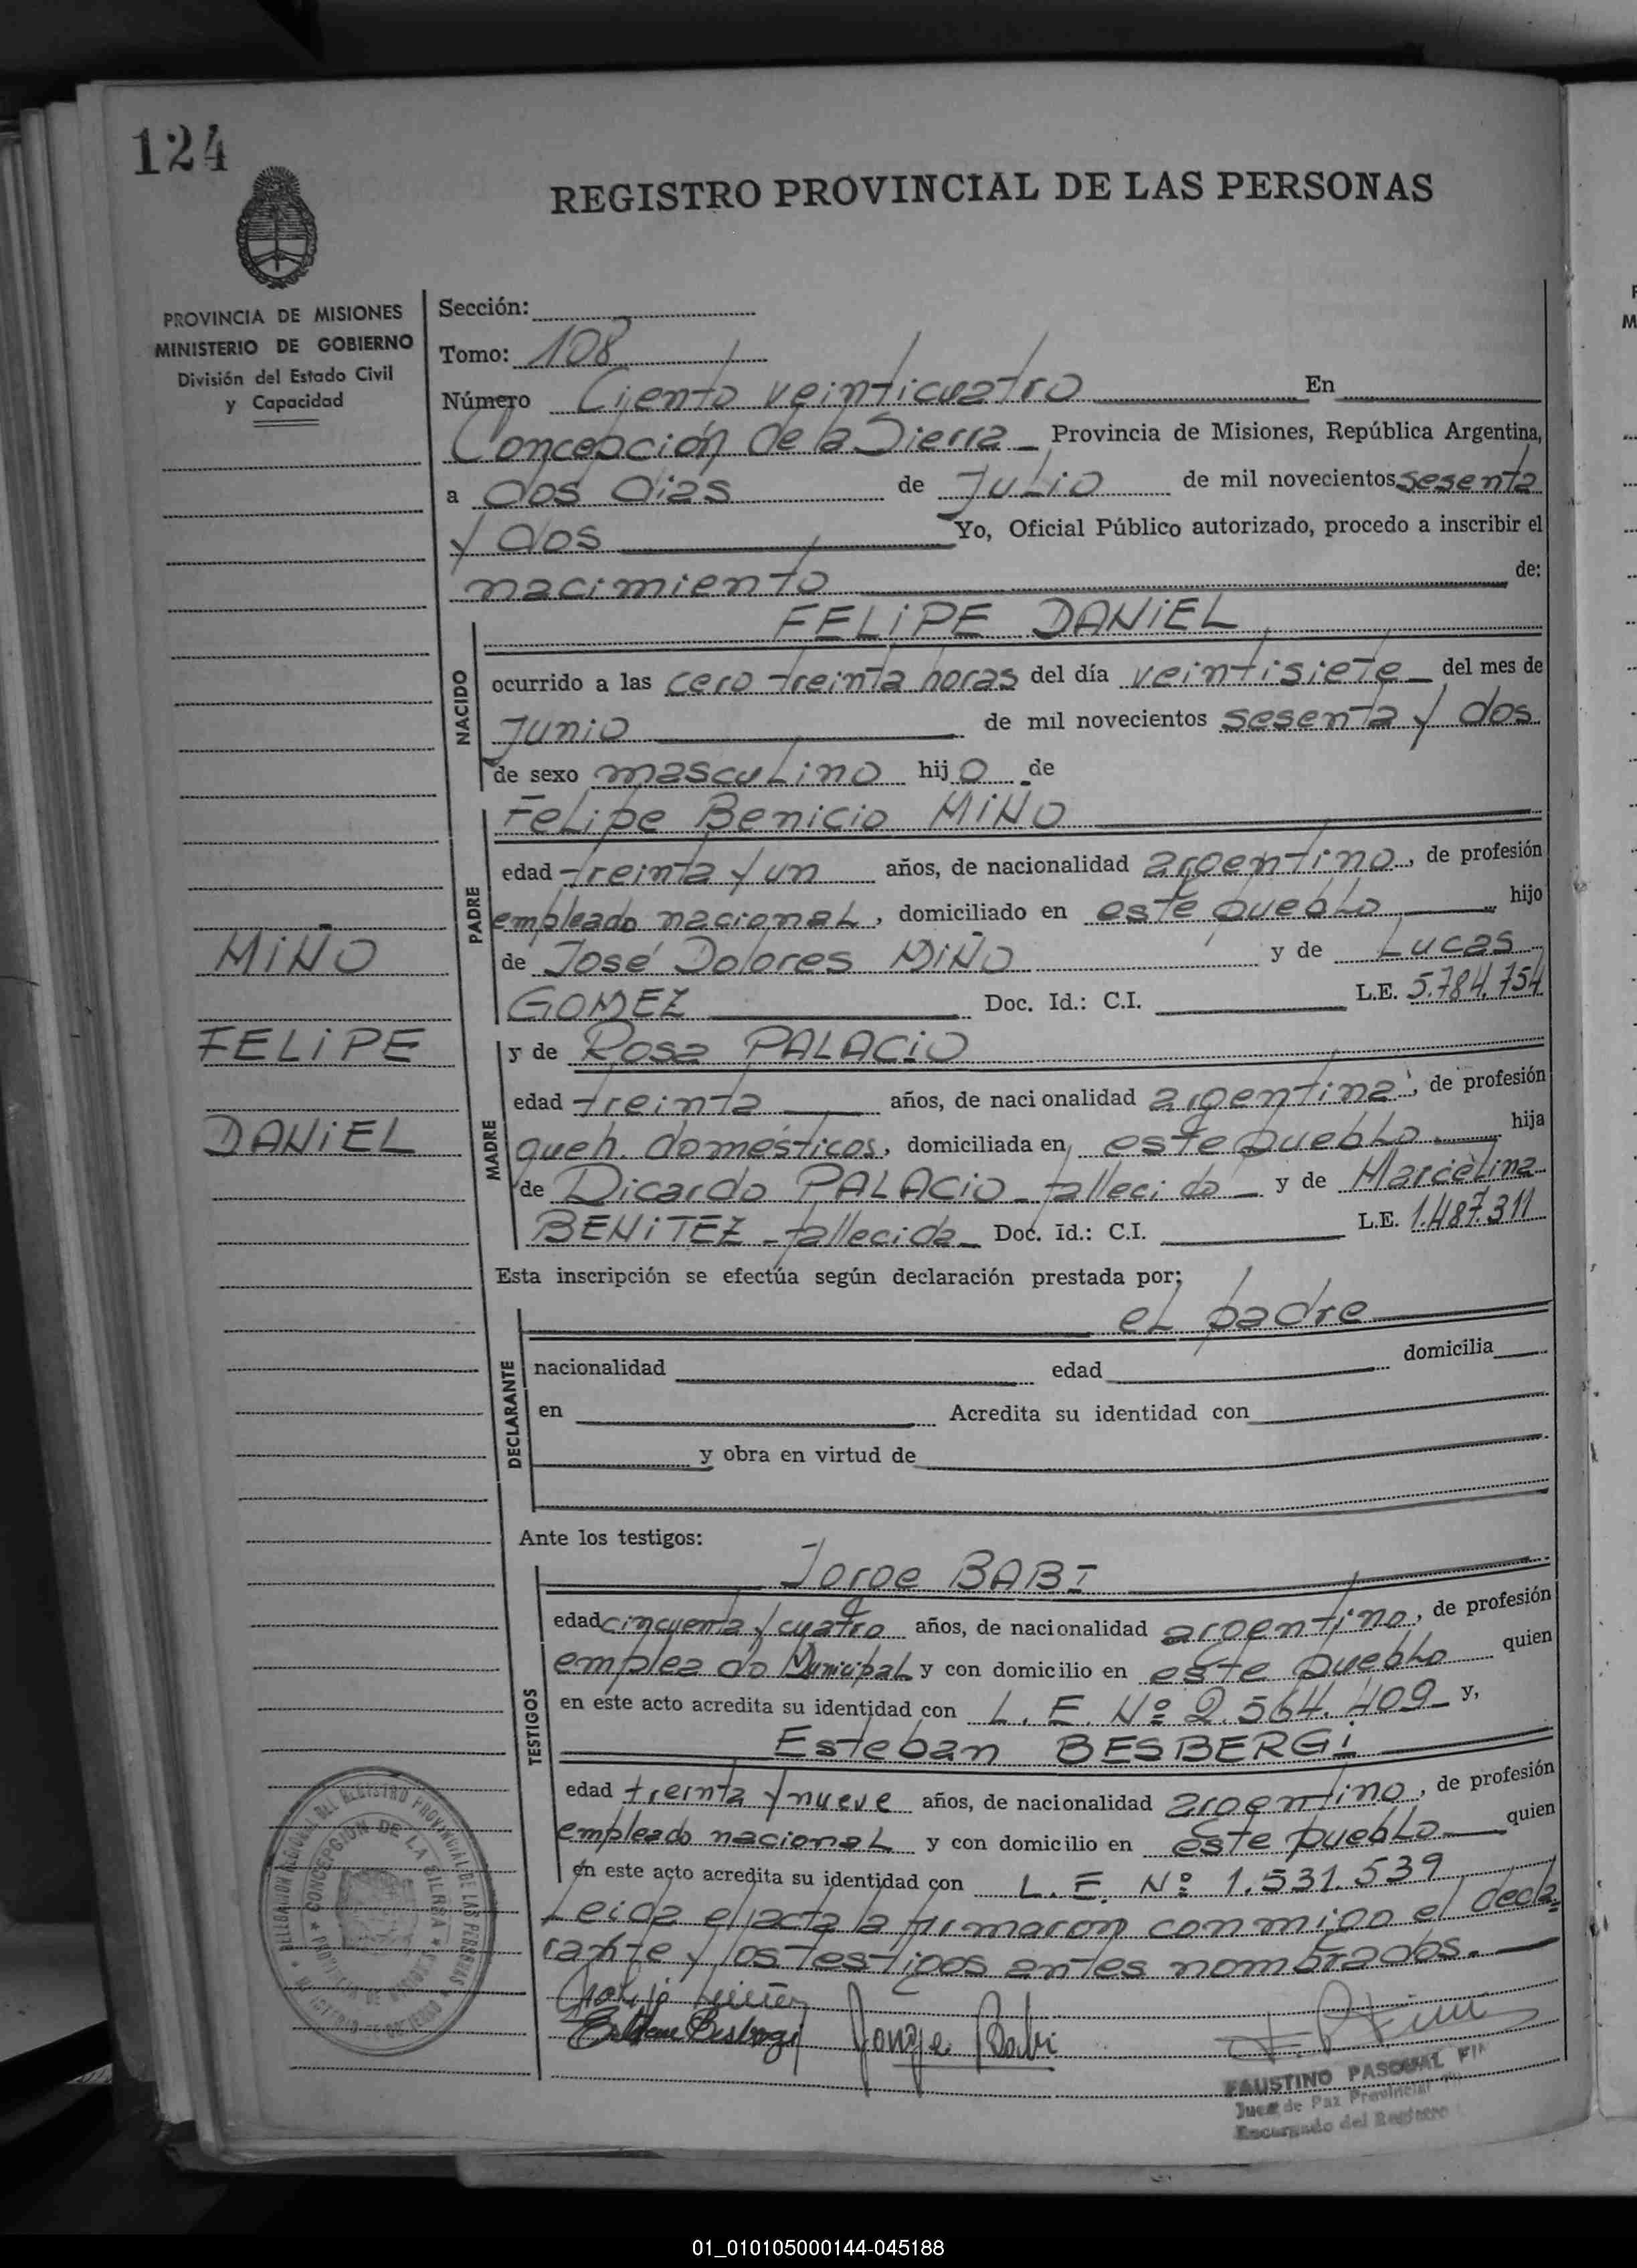 124
REGISTRO PROVINCIAL DE LAS PERSONAS
PROVINCIA DE MISIONES
MINISTERIO DE GOBIERNO
División del Estado Civil
y Capacidad
Sección:
Tomo: 108
Número Ciento veinticuatro En
Concepción de la Sierra Provincia de Misiones, República Argentina,
a dos días de Julio de mil novecientos sesenta
y dos Yo, Oficial Público autorizado, procedo a inscribir el
nacimiento de:
FELIPE DANIEL
NACIDO
ocurrido a las cero treinta horas del día veintisiete del mes de
Junio de mil novecientos sesenta y dos
de sexo masculino hijo de
Felipe Benicio MIÑO
PADRE
edad treinta y un años, de nacionalidad argentino, de profesión
empleado nacional, domiciliado en este pueblo hijo
de José Dolores MIÑO y de Lucas
GOMEZ Doc. Id.: C.I. L.E. 5.784.754
MIÑO
FELIPE
DANIEL
MADRE
y de Rosa PALACIO
edad treinta años, de nacionalidad argentina, de profesión
queh. domésticos, domiciliada en este pueblo hija
de Dicardo PALACIO fallecido y de Marcelina
BENITEZ fallecida Doc. Id.: C.I. L.E. 1.487.311
Esta inscripción se efectúa según declaración prestada por:
el padre
DECLARANTE
nacionalidad edad domicilia
en Acredita su identidad con
y obra en virtud de
Ante los testigos:
Jorge BABI
TESTIGOS
edad cincuenta y cuatro años, de nacionalidad argentino, de profesión
empleado Municipal y con domicilio en este pueblo quien
en este acto acredita su identidad con L. E. Nº 2.564.409 y,
Esteban BESBERGI
edad treinta y nueve años, de nacionalidad argentino, de profesión
empleado nacional y con domicilio en este pueblo quien
en este acto acredita su identidad con L. E. Nº 1.531.539
Leida el acta la firmaron conmigo el decla=
rante y los testigos antes nombrados.
DELEGACION REGIONAL DEL REGISTRO PROVINCIAL DE LAS PERSONAS
CONCEPCION DE LA SIERRA
PROVINCIA DE MISIONES
MINISTERIO DE GOBIERNO
Esteban Besbergi Jorge Babi
FAUSTINO PASCUAL
Juez de Paz Provincial
Encargado del Registro
01_010105000144-045188